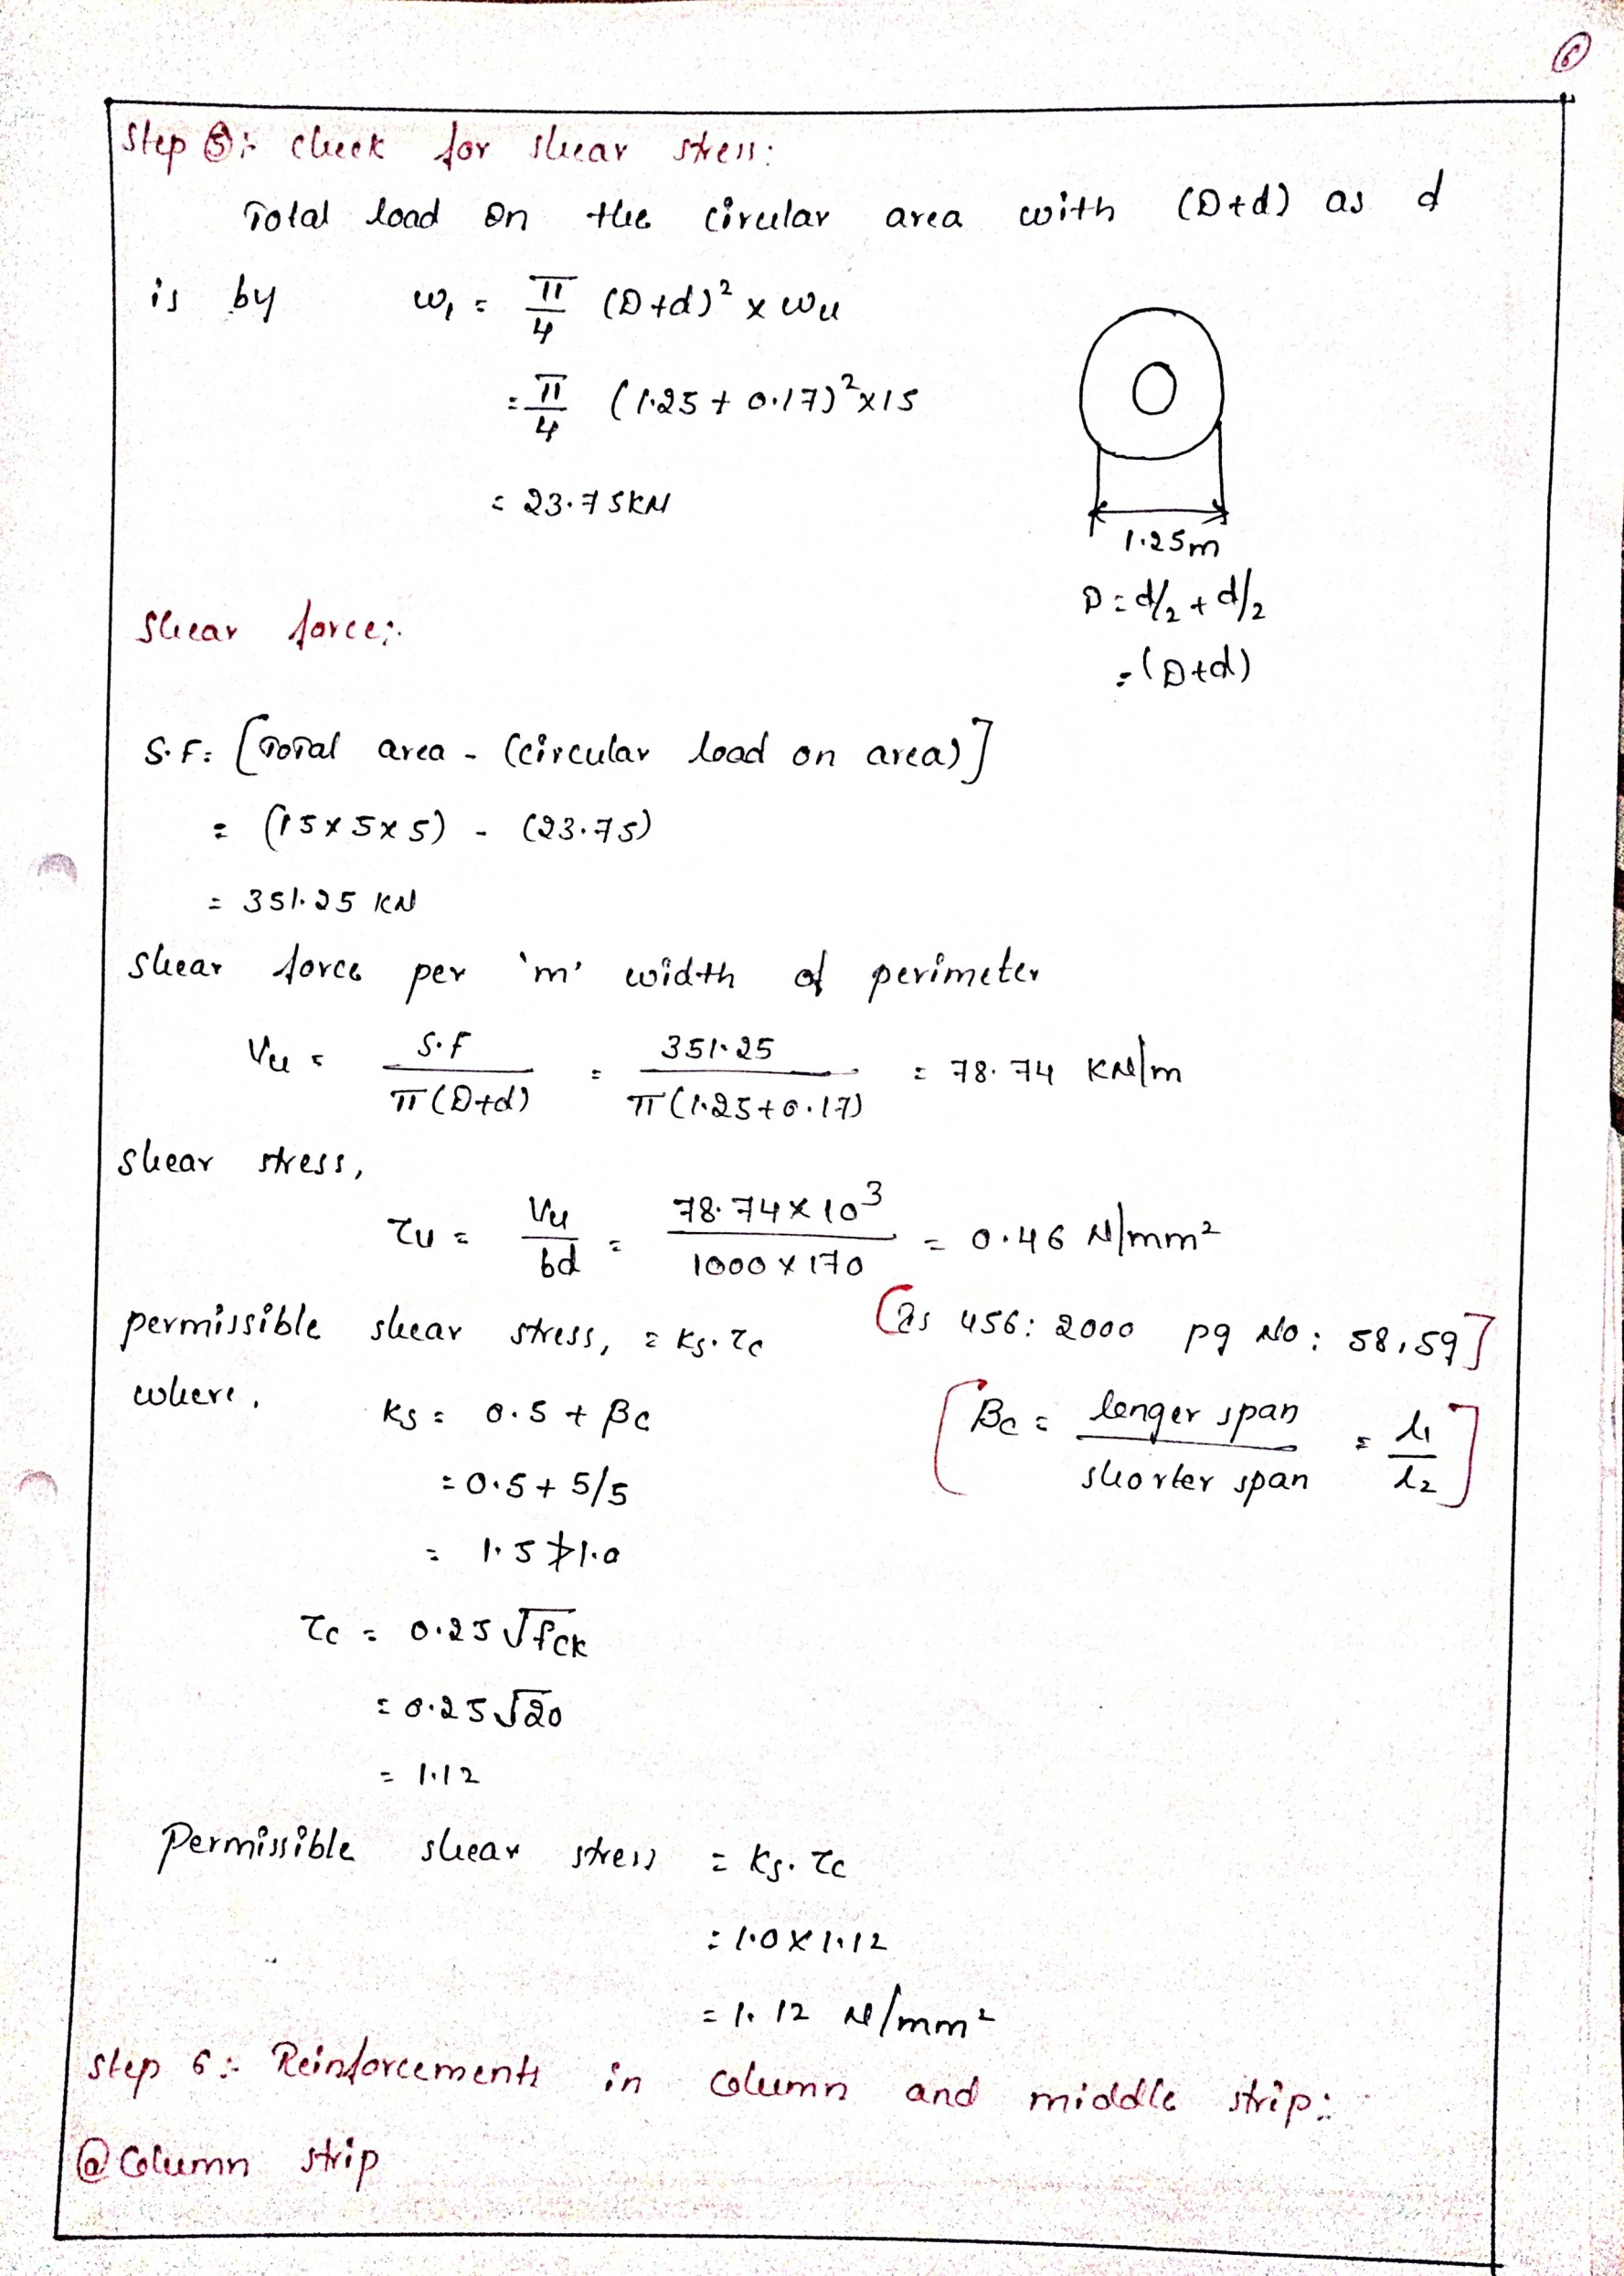 6
Step 5:- Check for shear stress:
Total load on the circular area with (D+d) as d
is by w₁ = π/4 (D+d)² x wu
= π/4 (1.25 + 0.17)² x 15
= 23.75KN
1.25m
D = d/2 + d/2
= (D+d)
Shear force:-
S.F = [Total area - (circular load on area)]
= (15 x 5 x 5) - (23.75)
= 351.25 KN
Shear force per 'm' width of perimeter
Vu = S.F / π(D+d) = 351.25 / π(1.25+0.17) = 78.74 KN/m
Shear stress,
τu = Vu / bd = 78.74 x 10³ / 1000 x 170 = 0.46 N/mm²
permissible shear stress, = ks.τc [IS 456: 2000 pg No: 58,59]
where, ks = 0.5 + βc [βc = longer span / shorter span = l₁ / l₂]
= 0.5 + 5/5
= 1.5 ≯ 1.0
τc = 0.25 √fck
= 0.25 √20
= 1.12
Permissible shear stress = ks. τc
= 1.0 x 1.12
= 1.12 N/mm²
Step 6:- Reinforcements in column and middle strip:-
ⓐ Column strip